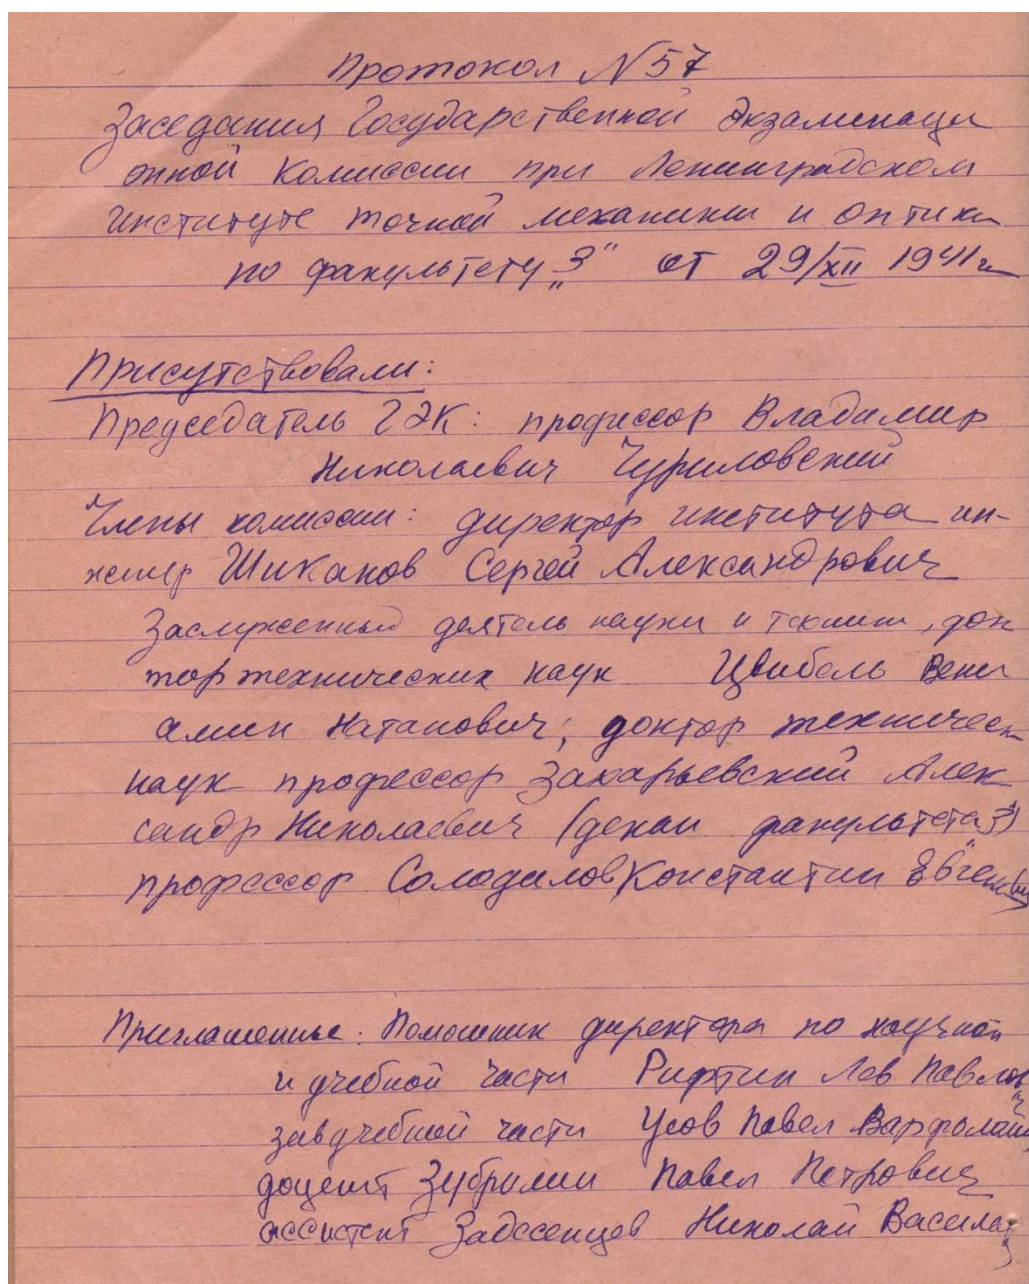 Протокол №57
Заседания Государственной Экзаменаци
онной Комиссии при Ленинградском
институте точной механики и оптики
по факультету „3" от 29/XII 1941 г
Присутствовали:
Председатель ГЭК: профессор Владимир
Николаевич Чуриловский
Члены комиссии: директор института ин-
женер Шиканов Сергей Александрович
Заслуженный деятель науки и техники, док
тор технических наук Цвибель Вени
амин Натанович; доктор техническ
наук профессор Захарьевский Алек
сандр Николаевич (декан факультета „3")
профессор Солодилов Константин Евгеневич
Приглашенные: Помошник директора по научной
и учебной части Рифтин Лев Павлович
зав учебной части Усов Павел
доцент Зубрилин Павел Петрович
ассистент Николай